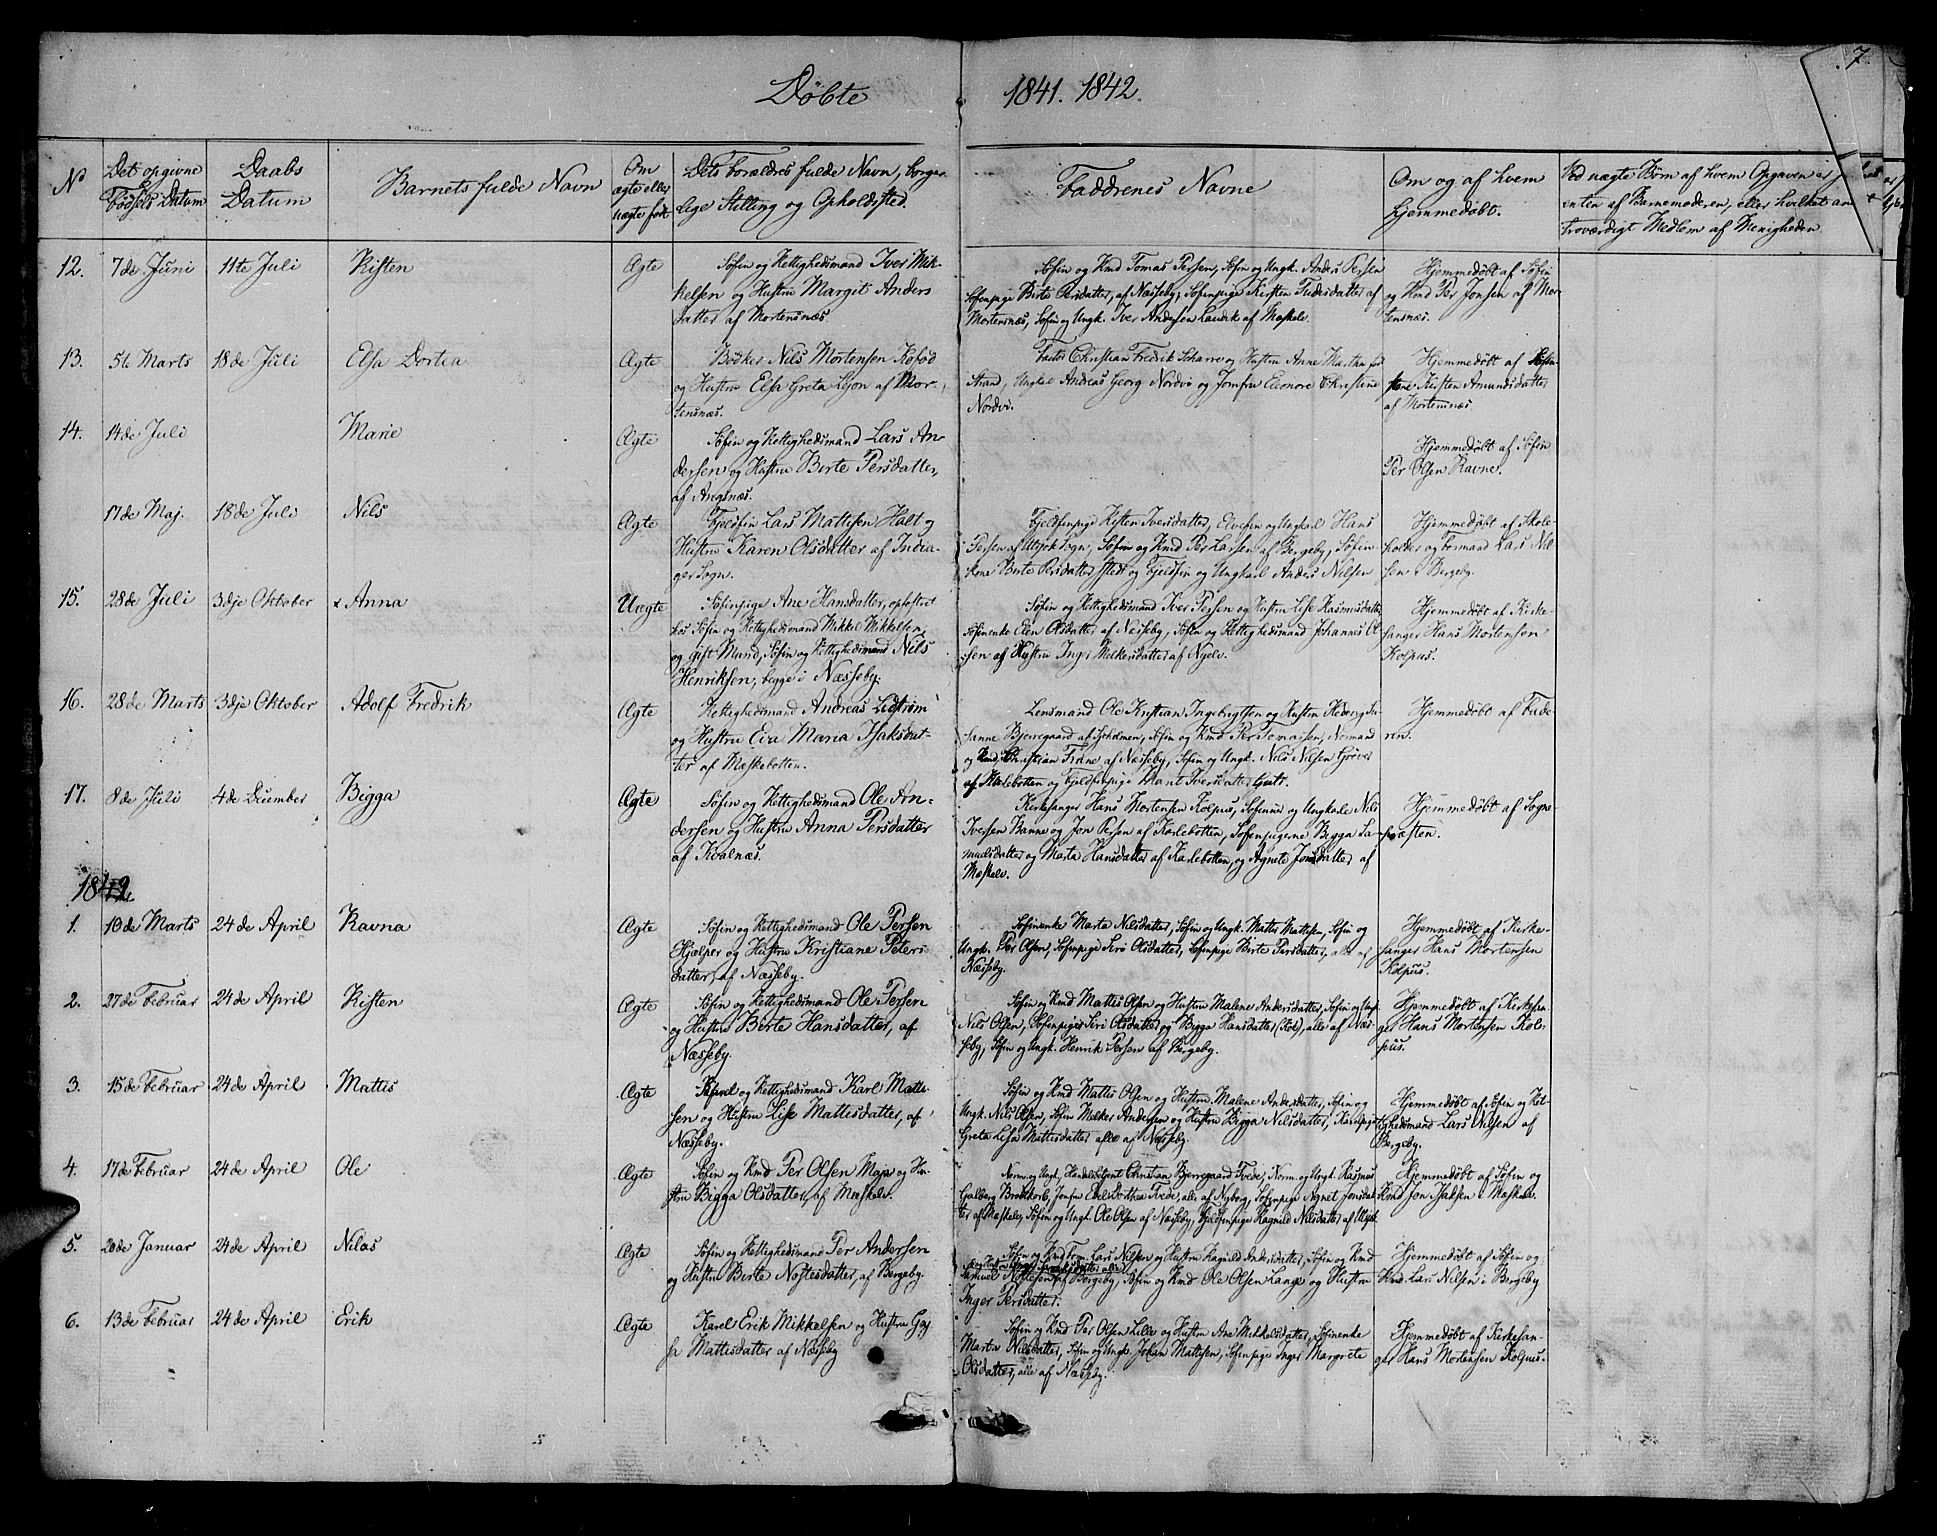 Døbte 1841. 1842.
7
No
Det opgivne Fødsels Datum
Daabs Datum
Barnets fulde Navn
Om ægte eller uægte født
Dets Forældres fulde Navn, borgerlige Stilling og Opholdsted.
Faddrenes Navne
Om og af hvem hjemmedøbt.
Ved uægte Børn af hvem Opgaven er
enten af Barnemoderen, eller hvilket
troværdigt Medlem af Menigheden
12. 7de Juni 11te Juli Kisten Ægte
Søfin og Rettighedsmand Iver Mik-
kelsen og Hustru Margit Anders
datter af Mortensnæs.
Søfin og Rmd Tomas Persen, Søfin og Ungk. Anders Persen
Søfinpige Birte Persdatter, af Næsseby, Søfinpige Kirsten Tudesdatter af
Mortensnæs, Søfin og Ungk. Iver Andersen af Maskelv.
Hjemmedøbt af Søfin
og Rmd Per Jonsen af Mor-
tensnæs.
13. 5te Marts 18de Juli Elsa Dortea Ægte
Bødker Nils Mortensen Kofød
og Hustru Elsa Greta Lyon af Mor-
tensnæs.
Christian Fredrik Scharre og Hustru Anne Martha for
Strand, Ungkal Andreas Georg Nordvi og Jomfru Eleonore Christine
Nordvi.
Hjemmedøbt af
Kisten Amundsdatter
af Mortensnæs
14. 14de Juli Marie Ægte
Søfin og Rettighedsmand Lars An-
dersen og Hustru Berte Persdatter,
af Angsnæs.
Hjemmedøbt af Søfin
Per Olsen Ravne.
17de Maj. 18de Juli Nils Ægte
Fjeldfin Lars Mattisen Halt og
Hustru Karen Olsdatter af India-
ger Sogn.
Fjeldfinpige Kisten Iversdatter, Elvefin og Ungkarl Hans
Persen af Utsjok Sogn, Søfin og Rmd Per Larsen af Bergeby, Søfin-
kone Birte Persdatter og Fjeldfin og Ungkarl Anders Nilsen
Hjemmedøbt af Skole-
holder og Formand Lars Nil-
sen i Bergeby.
15. 28de Juli 3dje Oktober x Anna Uægte
Søfinpige Ane Hansdatter, opfostret
hos Søfin og Rettighedsmand Mikkel Mikkelsen,
og gift Mand, Søfin og Rettighedsmand Nils
Henriksen, begge i Næsseby.
Søfin og Rettighedsmand Iver Persen og Hustru Lise Rasmusdatter
Søfinenke Elen Olsdatter af Næsseby, Søfin og Rettighedsmand Johannes Ol-
sen af Hustru Inger Melkersdatter af Nyelv.
Hjemmedøbt af Kirke-
sanger Hans Mortensen
Kolpus.
16. 28de Marts 3dje Oktober Adolf Fredrik Ægte
Rettighedsmand Andreas Lidstrøm
og Hustru Eva Maria Isaksdat-
ter af Mæskebotten.
Lensmand Ole Kristian Ingebrigtsen og Hustru Hedevig Su-
sanne Bjerregaard af Sjoholmen, Søfin og Rmd Per Tomasen, Normand
og Rmd, Christian Friane af Næsseby, Søfin og Ungk. Nils Nilsen Grøver
af Karlebotten og Fjeldfinpige Marit Iversdatter
Hjemmedøbt af Fade-
ren.
17. 8de Juli 4de December Bigga Ægte
Søfin og Rettighedsmand Ole An-
dersen og Hustru Anna Persdatter
af Kvalnæs.
Kirkesanger Hans Mortensen Kolpus, Søfinne og Ungkarle Nils
Iversen Banne og Jon Persen af Karlebotten, Søfinpigerne Bigga Sa-
muelsdatter og Marta Hansdatter af Karlebotten, og Agnete Jonsdatter af
Maskelv.
Hjemmedøbt af Sogne-
præsten.
1842
1. 10de Marts 24de April Ravna Ægte
Søfin og Rettighedsmand Ole Persen
Hjælper og Hustru Kristiane Peters-
datter, af Næsseby.
Søfinenke Marta Nilsdatter, Søfin og Ungk. Mattis Mattisen, Søfin og
Ungk. Per Olsen, Søfinpige Siri Olsdatter, Søfinpige Birte Persdatter, alle af
Næsseby.
Hjemmedøbt af Kirke-
sanger Hans Mortensen
Kolpus.
2. 27de Februar 24de April Kisten Ægte
Søfin og Rettighedsmand Ole Persen
og Hustru Berte Hansdatter, af
Næsseby.
Søfin og Rmd Mattis Olsen og Hustru Malene Andersdatter, Søfin og Ungk
Nils Olsen, Søfinpiger Siri Olsdatter og Bigga Hansdatter, alle af Næs-
seby, Søfin og Ungk. Henrik Persen af Bergeby.
Hjemmedøbt af Kirkesan-
ger Hans Mortensen Kol-
pus.
3. 15de Februar 24de April Mattis Ægte
og Rettighedsmand Karl Matti-
sen og Hustru Lise Mattisdatter, af
Næsseby.
Søfin og Rmd Mattis Olsen og Hustru Malene Andersdatter, Søfin og
Ungk. Nils Olsen, Søfin Melker Andersen og Hustru Bigga Nilsdatter,
Greta Lisa Mattisdatter alle af Næsseby.
Hjemmedøbt af Søfin og Ret-
tighedsmand Lars Nilsen af
Bergeby.
4. 17de Februar 24de April Ole Ægte
Søfin og Rmd Per Olsen Maja og Hu-
stru Bigga Olsdatter, af Maskelv.
Norm og Ungk, Handelsbetjent Christian Bjerregaard Tvede, Norm. og Ungk. Rasmus
Galberg Brodtkorb, Jomfru Edel Dorthea Tvede, alle af Nyborg, Søfinpige Agnet Jonsdat-
ter af Maskelv, Søfin og Ungk. Ole Olsen af Næsseby, Fjeldfinpige Ragnild Nilsdatter af Utsjok
Hjemmedøbt af Søfin og
Rmd Jon Isaksen i Maskelv.
5. 20de Januar 24de April Nilas Ægte
Søfin og Rettighedsmand Per Andersen
og Hustru Birte Noftesdatter, af Bergeby.
Søfin og Rmd Form. Lars Nilsen og Hustru Ragnild Andersdatter, Søfin og Rmd
Samuel Noftesen, af Bergeby, Søfin og Rmd Ole Olsen Lange og Hustru
Inger Persdatter.
Hjemmedøbt af Søfin og
Rmd. Lars Nilsen i Bergeby
6. 13de Februar 24de April Erik Ægte
Karel Erik Mikkelsen og Hustru Gaj-
sa Mattisdatter af Næsseby
Søfin og Rmd Per Olsen Lille og Hustru Ane Mikkelsdatter, Søfinenke
Marta Nilsdatter, Søfin og Ungk. Johan Mattisen, Søfinpige Inger Margrete
Olsdatter, alle af Næsseby.
Hjemmedøbt af Kirkesan-
ger Hans Mortensen Kolpus.